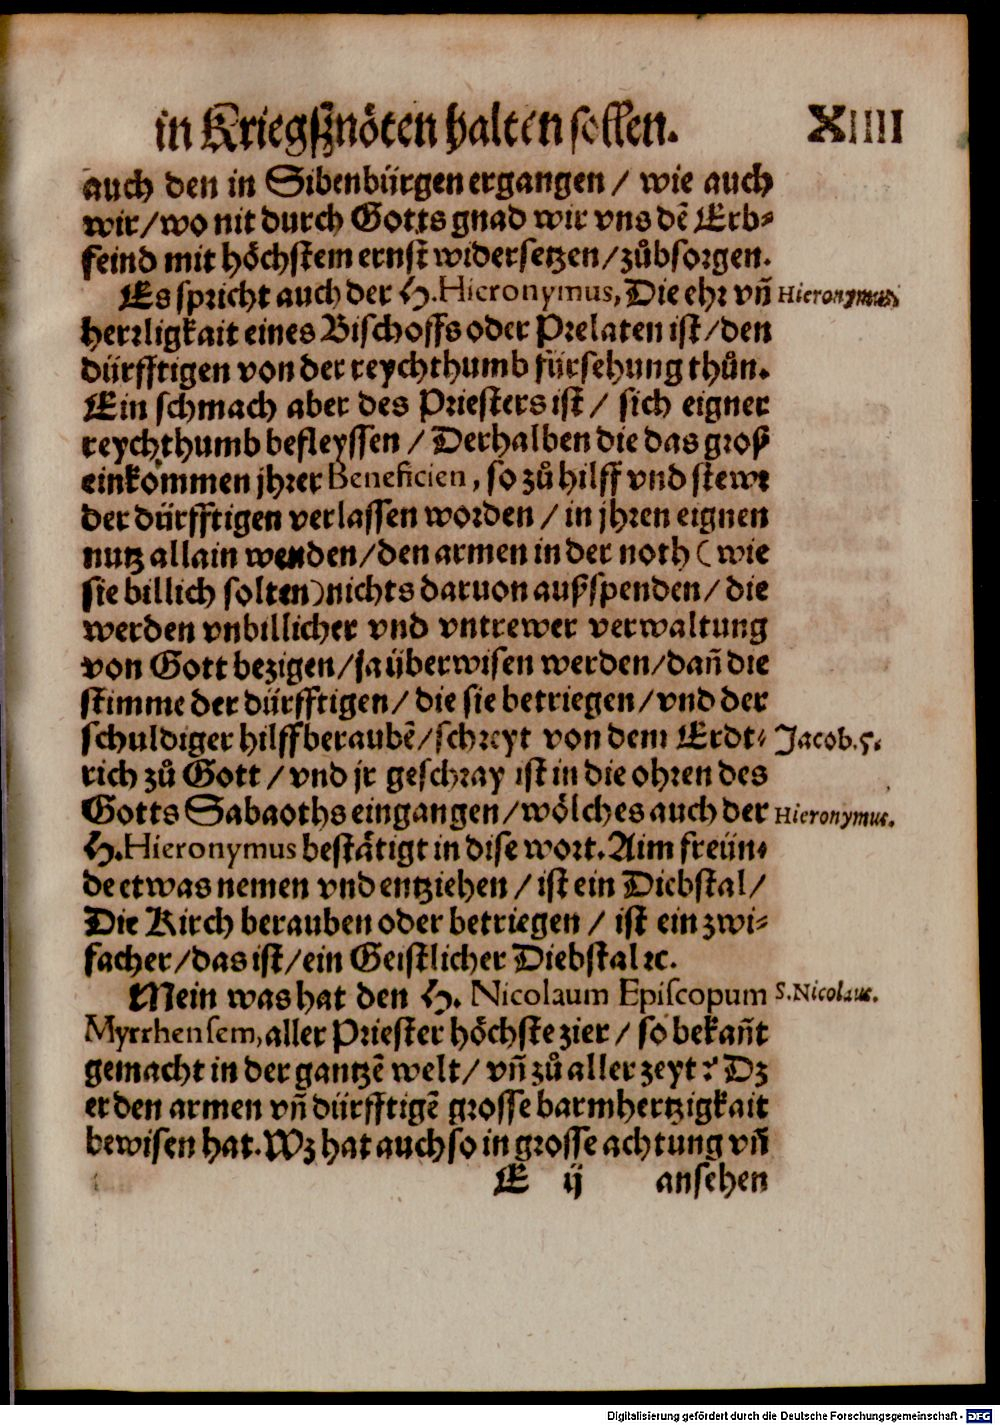 in Kriegßnöten halten sollen. XIIII
auch den in Sibenbürgen ergangen / wie auch
wir / wo nit durch Gotts gnad wir vns dẽ Erb-
feind mit höchstem ernst widersetzen / zůbsorgen.
Es spricht auch der H. Hieronymus, Die ehr vñ Hieronymus.
herrligkait eines Bischoffs oder Prelaten ist / den
dürfftigen von der reychthumb fürsehung thůn.
Ein schmach aber des Priesters ist / sich eigner
reychthumb befleyssen / Derhalben die das groß
einkommen jhrer Beneficien, so zů hilff vnd stewr
der dürfftigen verlassen worden / in jhren eignen
nutz allain wenden / den armen in der noth ( wie
sie billich solten ) nichts daruon außspenden / die
werden vnbillicher vnd vntrewer verwaltung
von Gott bezigen / ja überwisen werden / dañ die
stimme der dürfftigen / die sie betriegen / vnd der
schuldiger hilff beraubẽ / schreyt von dem Erdt- Jacob. 5.
rich zů Gott / vnd jr geschray ist in die ohren des
Gotts Sabaoths eingangen / wölches auch der Hieronymus.
H. Hieronymus bestätigt in dise wort. Aim freün-
de etwas nemen vnd entziehen / ist ein Diebstal /
Die Kirch berauben oder betriegen / ist ein zwi-
facher / das ist / ein Geistlicher Diebstal ꝛc.
Mein was hat den H. Nicolaum Episcopum S. Nicolaus.
Myrrhensem, aller Priester höchste zier / so bekañt
gemacht in der gantzẽ welt / vñ zů aller zeyt? Dz
er den armen vñ dürfftigẽ grosse barmhertzigkait
bewisen hat. Wz hat auch so in grosse achtung vñ
E ij ansehen
Digitalisierung gefördert durch die Deutsche Forschungsgemeinschaft - DFG